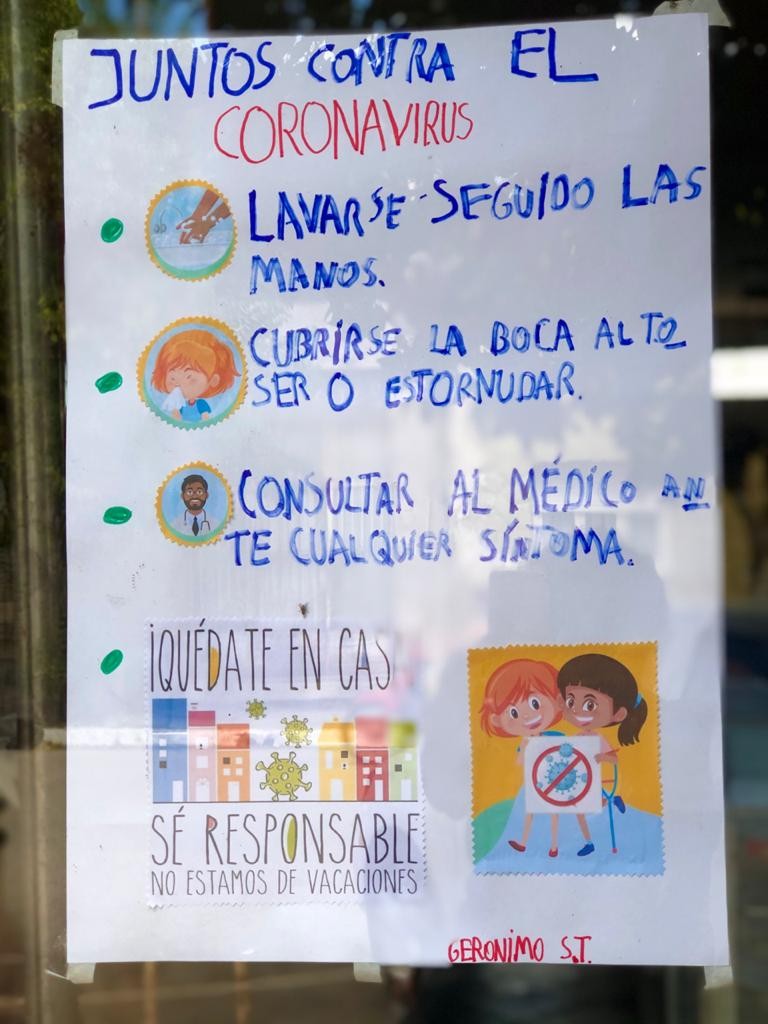 JUNTOS CONTRA EL
CORONAVIRUS
LAVARSE SEGUIDO LAS
MANOS.
CUBRIRSE LA BOCA AL TO
SER O ESTORNUDAR.
CONSULTAR AL MÉDICO AN
TE CUALQUIER SÍNTOMA.
¡QUÉDATE EN CAS
SÉ RESPONSABLE
NO ESTAMOS DE VACACIONES
GERONIMO S.T.